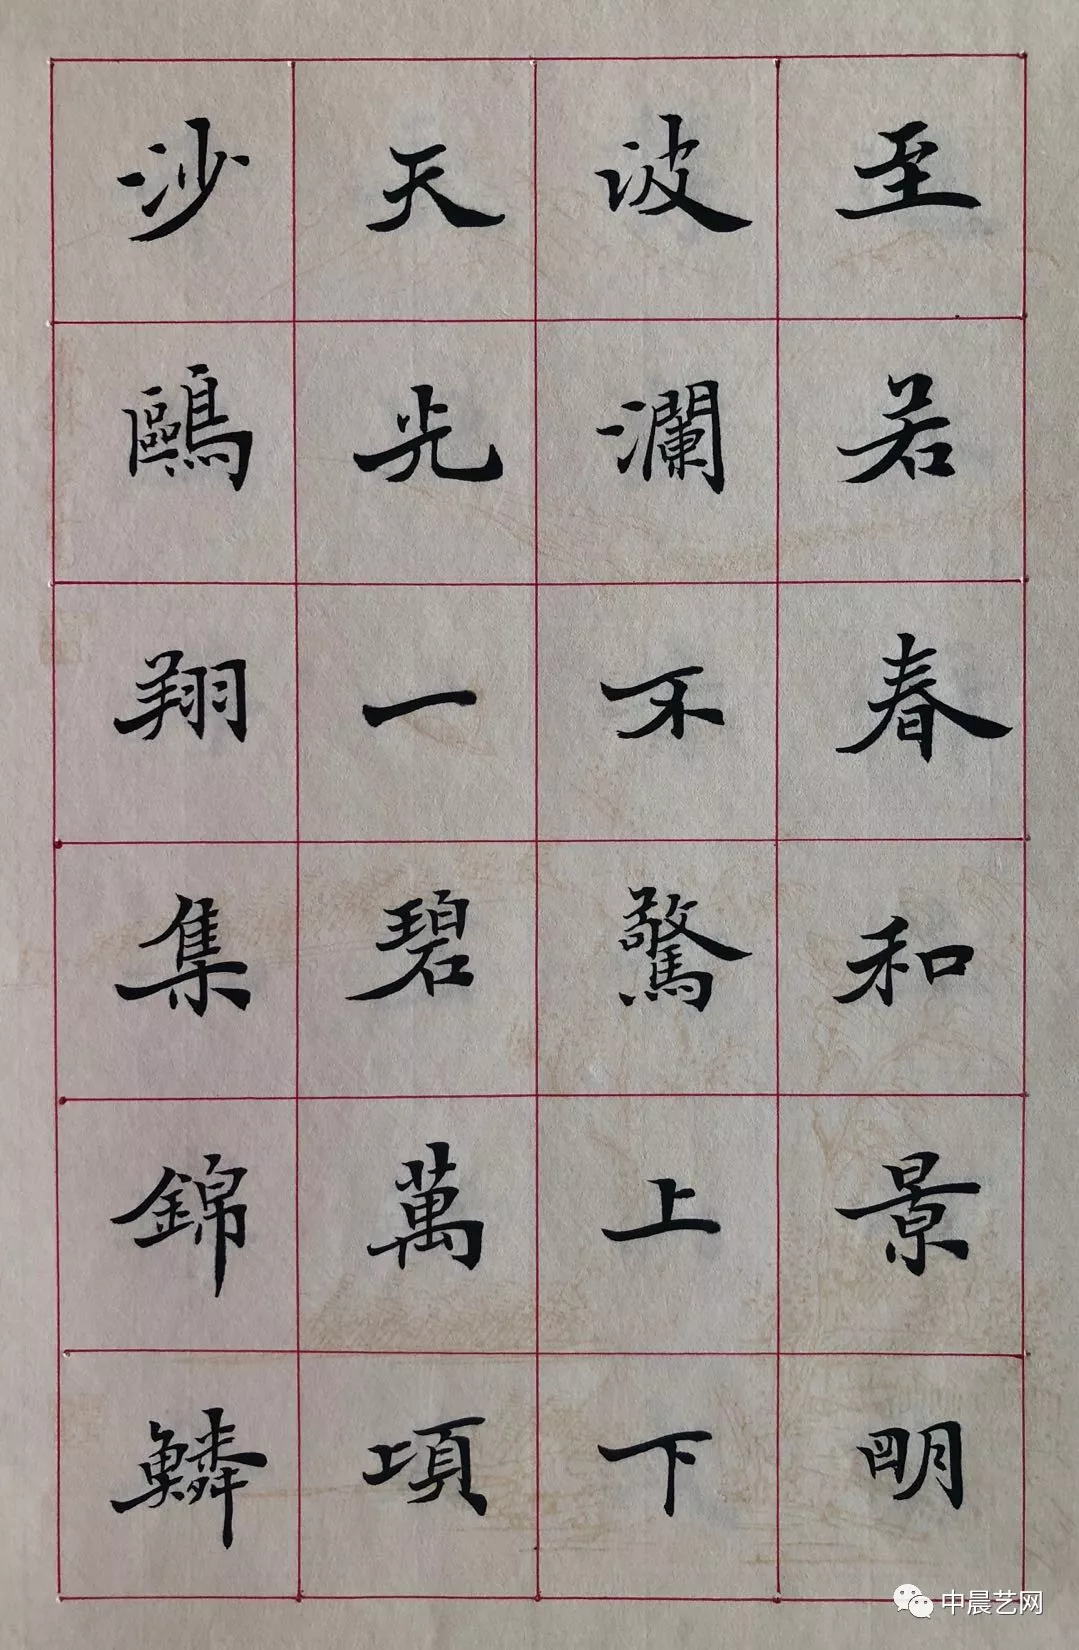 至若春和景明
波瀾不驚上下
天光一碧萬項
沙鷗翔集錦鱗
中晨艺网